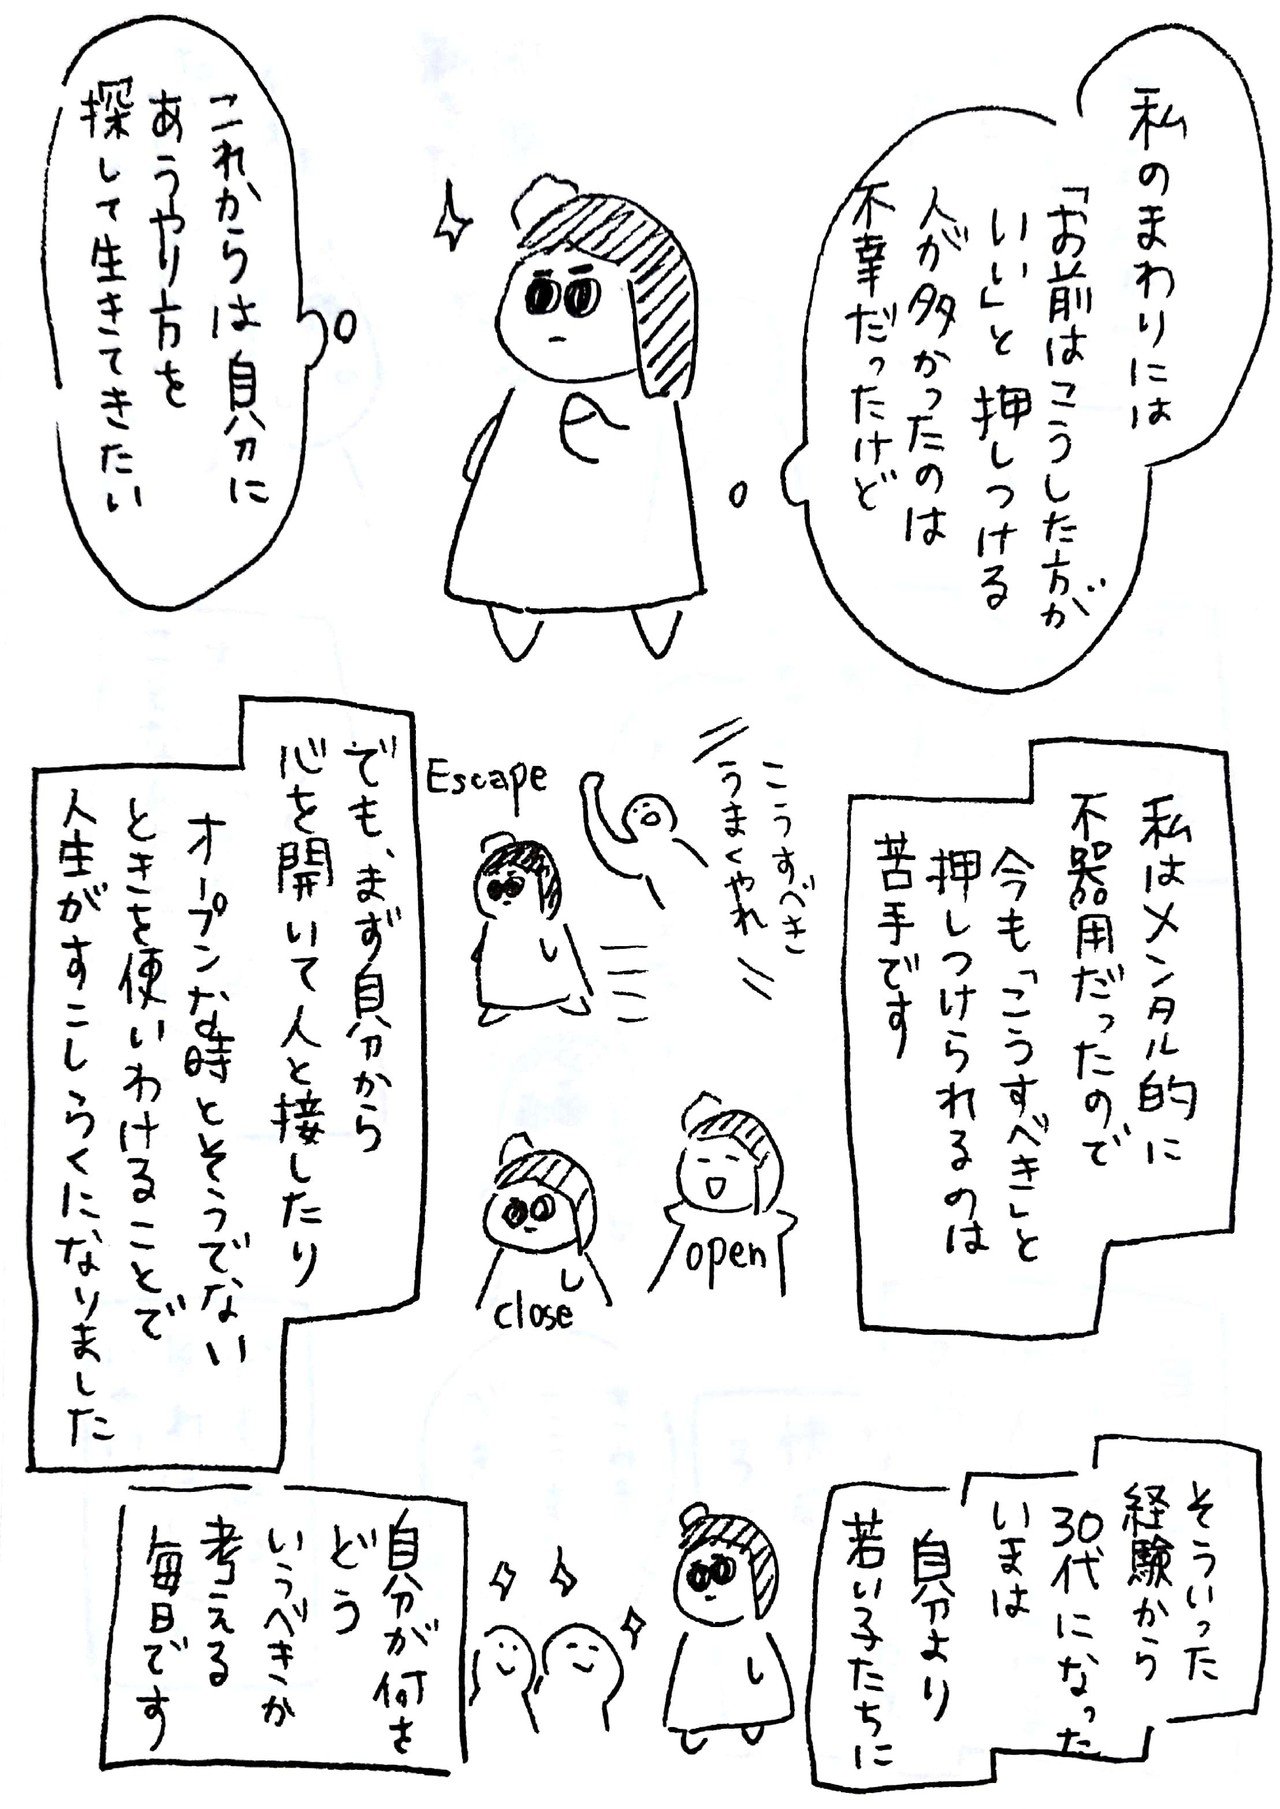 私のまわりには
「お前はこうした方が
いい」と押しつける
人が多かったのは
不幸だったけど
これからは自分に
あうやり方を
探して生きてきたい
私はメンタル的に
不器用だったので
今も「こうすべき」と
押しつけられるのは
苦手です
こうすべき
うまくやれ
Escape
open
close
でも、まず自分から
心を開いて人と接したり
オープンな時とそうでない
ときを使いわけることで
人生がすこしらくになりました
そういった
経験から
30代になった
いまは
自分より
若い子たちに
自分が何を
どう
いうべきか
考える
毎日です